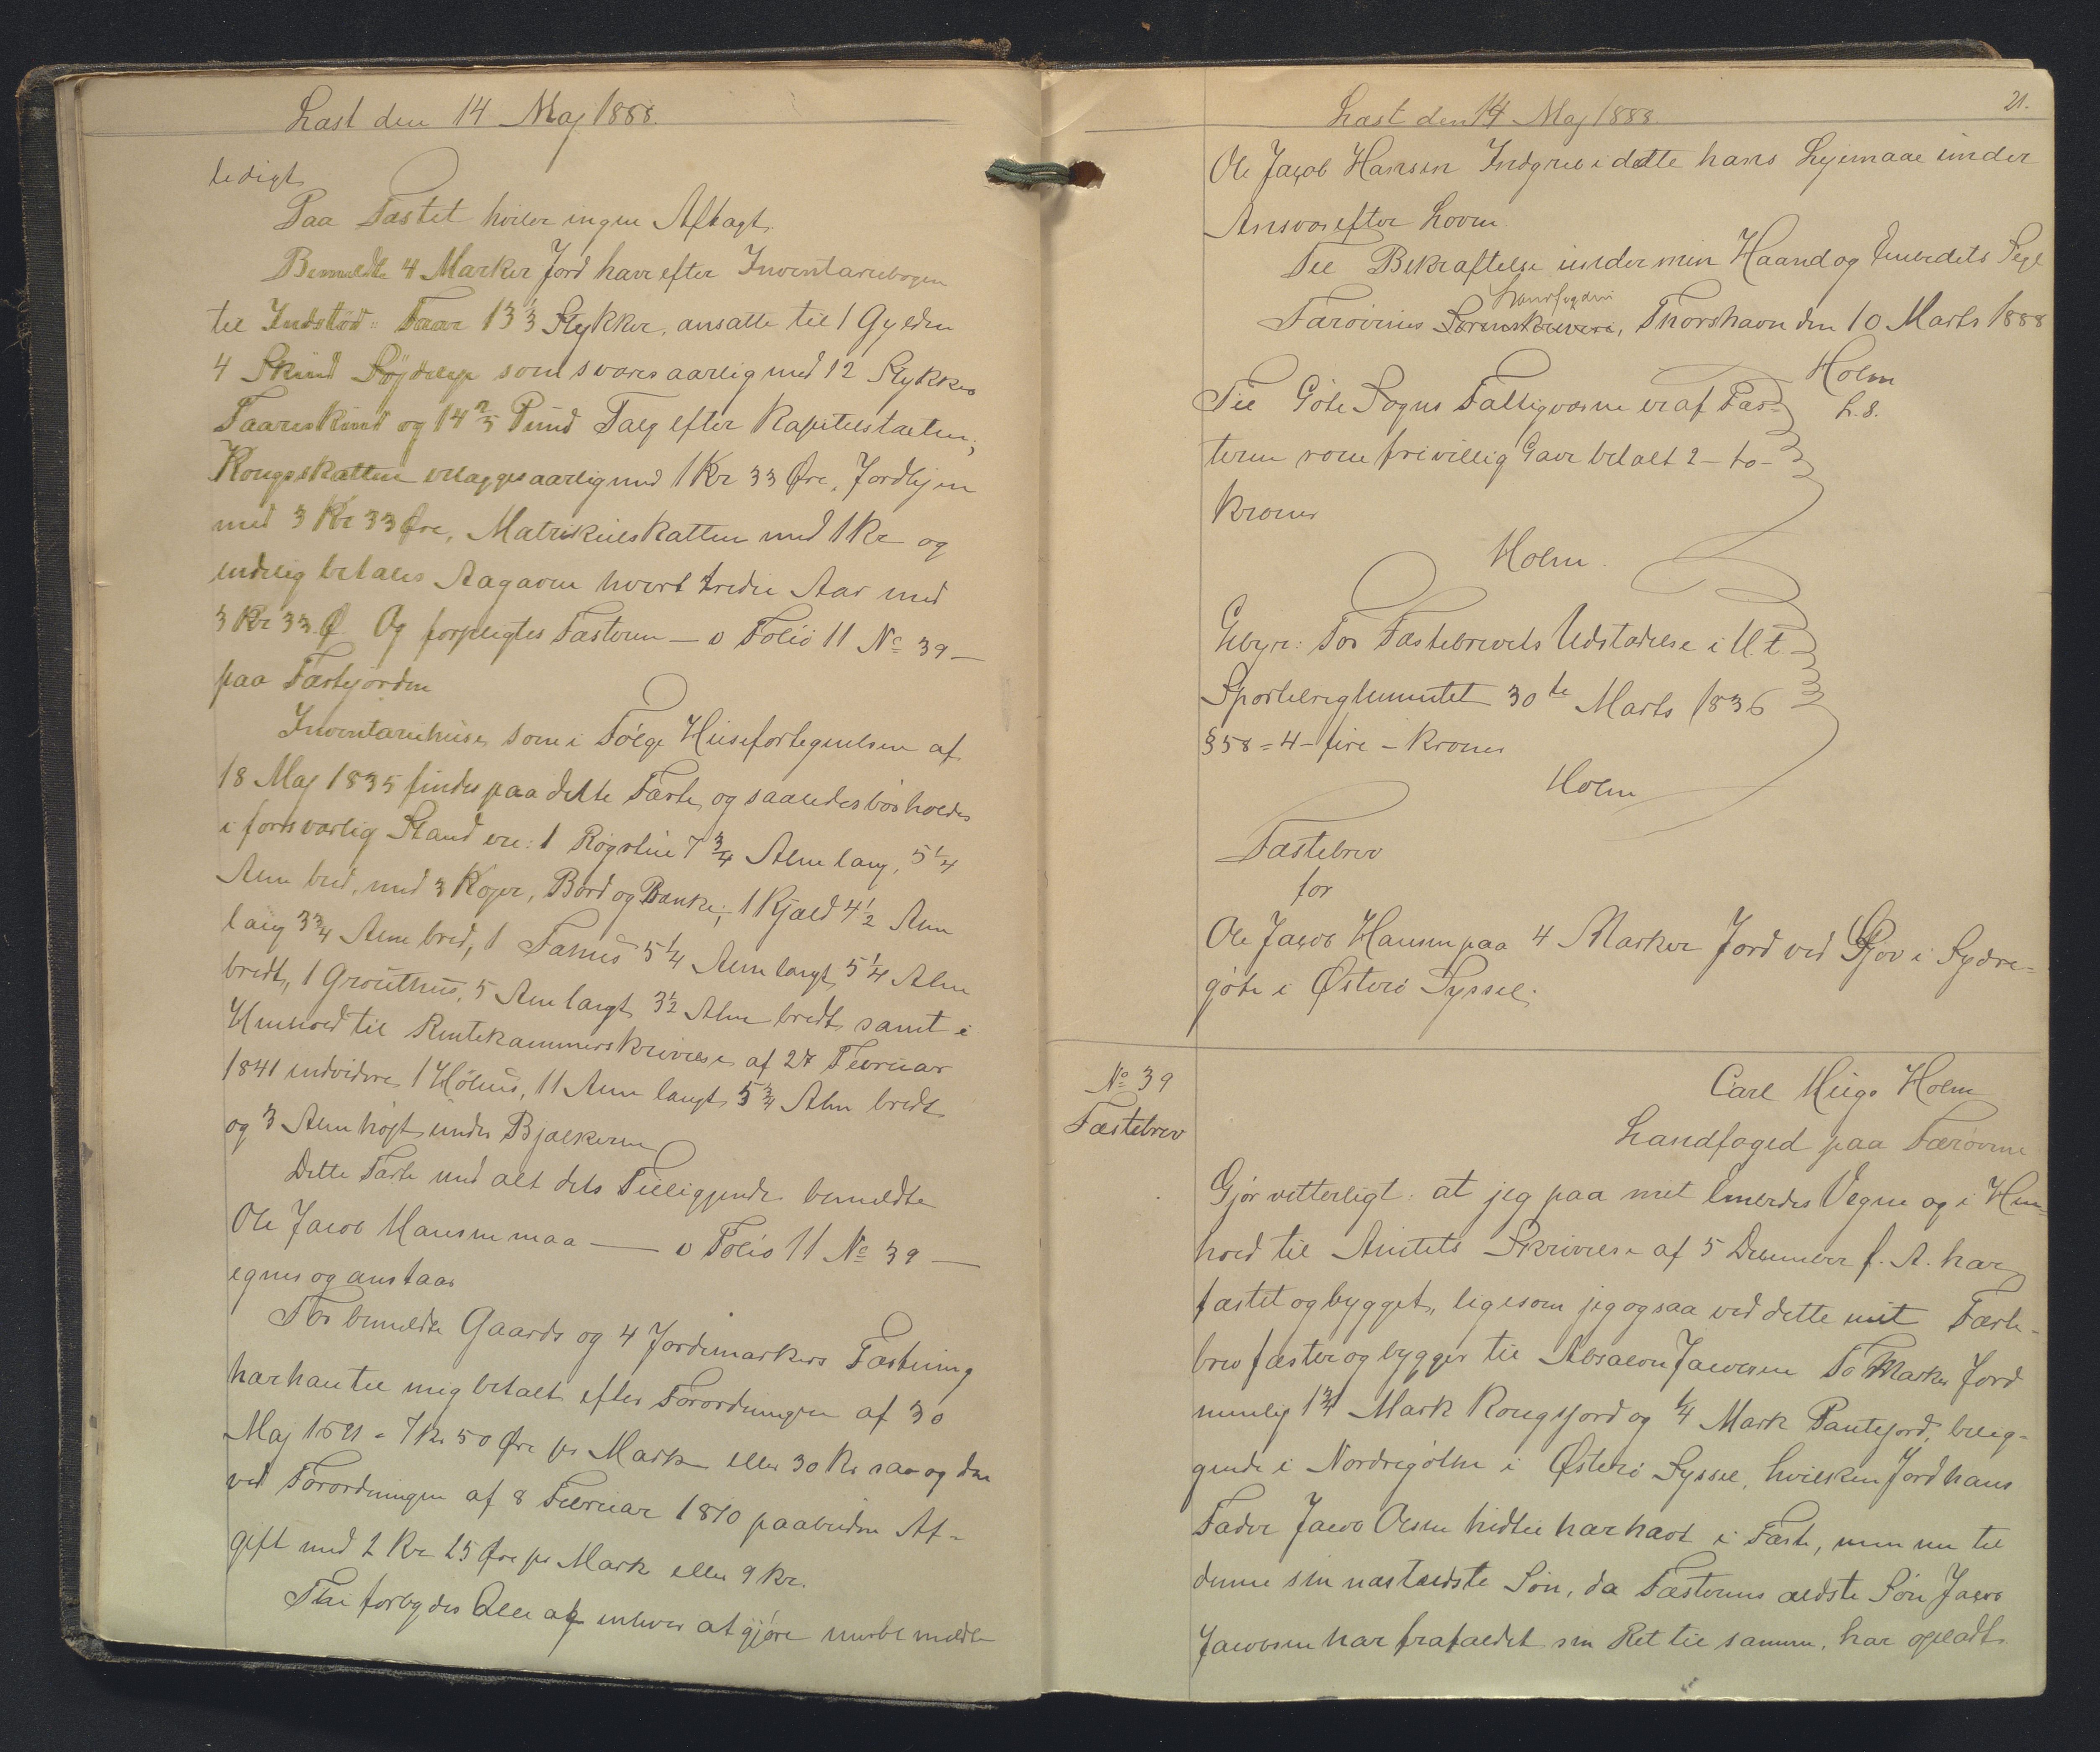 Læst den 14 Maj 1888.
ledigt
Paa Fæstet hviler ingen Aftægt.
Bemeldte 4 Marker Jord have efter Inventariebogen
til Indstød: Faar 13 1/3 Stykker, ansatte til 1 Gylden
4 Skind som svares aarlig med 12 Stykker
Faareskind og 14 2/5 Pund Talg efter Kapitelstaxten;
Kongsskatten erlægges aarlig med 1 Kr 33 Øre, Jordlejen
med 3 Kr 33 Øre, Matrikulskatten med 1 Kr og
endelig betales Aagaven hvert tredie Aar med
3 Kr 33 Ø. Og forpligtes Fæsteren — v Folio 11 No 39 —
paa Fæstejorden
Inventariehuse, som i Følge Husefortegnelsen af
18 Maj 1835 findes paa dette Fæste, og saaledes bør holdes
i forsvarlig Stand ere: 1 Røgstue 7 3/4 Alen lang, 5 1/4
Alen bred, med 3 Kojer, Bord og Bænke; 1 Kjæld 4 1/2 Alen
lang 3 3/4 Alen bred, 1 Fæhus 5 1/4 Alen langt, 5 1/4 Alen
bredt, 1 Grouthus, 5 Alen langt 3 1/2 Alen bredt samt i
Henhold til Rentekammerskrivelse af 27 Februar
1841 endvidere 1 Høhus, 11 Alen langt 5 3/4 Alen bredt
og 3 Alen højt under Bjælkerne
Dette Fæste med alt dets Tilliggende bemeldte
Ole Jacob Hansen maa — v Folio 11 No 39 —
egnes og anstaar
For bemeldte Gaards og 4 Jordemarkers Fæstning
har han til mig betalt efter Forordningen af 30
Maj 1691 = 7 Kr 50 Øre pr Mark eller 30 Kr saa og den
ved Forordningen af 8 Februar 1810 paabudne Af-
gift med 2 Kr 25 Øre pr Mark eller 9 Kr.
Thi forbydes Alle og enhver at gjøre nysbemeldte
21.
Læst den 14 Maj 1888.
Ole Jacob Hansen Indgreb i dette hans Lejemaal under
Ansvar efter Loven.
Til Bekræftelse under min Haand og Embedets Segl
Landfogderi
Færøernes Sorenskriveri, Thorshavn den 10 Marts 1888
Holm
L.S.
Til Gøte Sogns Fattigvæsen er af Fæs-
teren som frivillig Gave betalt 2 - to -
Kroner
Holm.
Gebyr: For Fæstebrevets Udstædelse i H. t.
Sportelreglementet 30te Marts 1836
§ 58 = 4 - fire - Kroner
Holm
Fæstebrev
for
Ole Jacob Hansen paa 4 Marker Jord ved Gjov i Sydre-
gøte i Østerø Syssel.
No 39
Fæstebrev
Carl Hugo Holm
Landfoged paa Færøerne
Gjør vitterligt: at jeg paa mit Embedes Vegne og i Hen-
hold til Amtets Skrivelse af 5 December f. A. har
fæstet og bygget, ligesom jeg ogsaa ved dette mit Fæste-
brev fæster og bygger til Absalon Jacobsen To Marker Jord
nemlig 1 3/4 Mark Kongsjord og 1/4 Mark Pantejord, belig-
gende i Nordregøthe i Østerø Syssel, hvilken Jord hans
Fader Jacob Olsen hidtil har havt i Fæste, men nu til
denne sin næstældste Søn, da Fæsterens ældste Søn Jacob
Jacobsen har frafaldet sin Ret til samme, har opladt